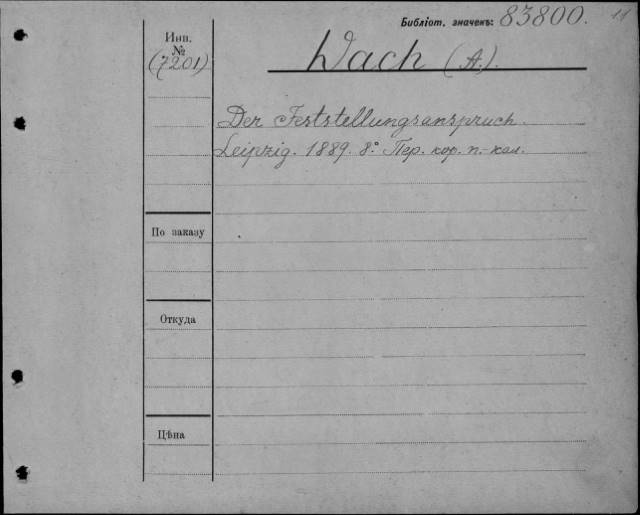 Библіот. значекъ: 83800. 11
Инв.
№
(7201)
Wach (A.).
Der Feststellungsanspruch.
Leipzig. 1889. 8° Пер. кор. п.-кал.
По заказу
Откуда
Цѣна